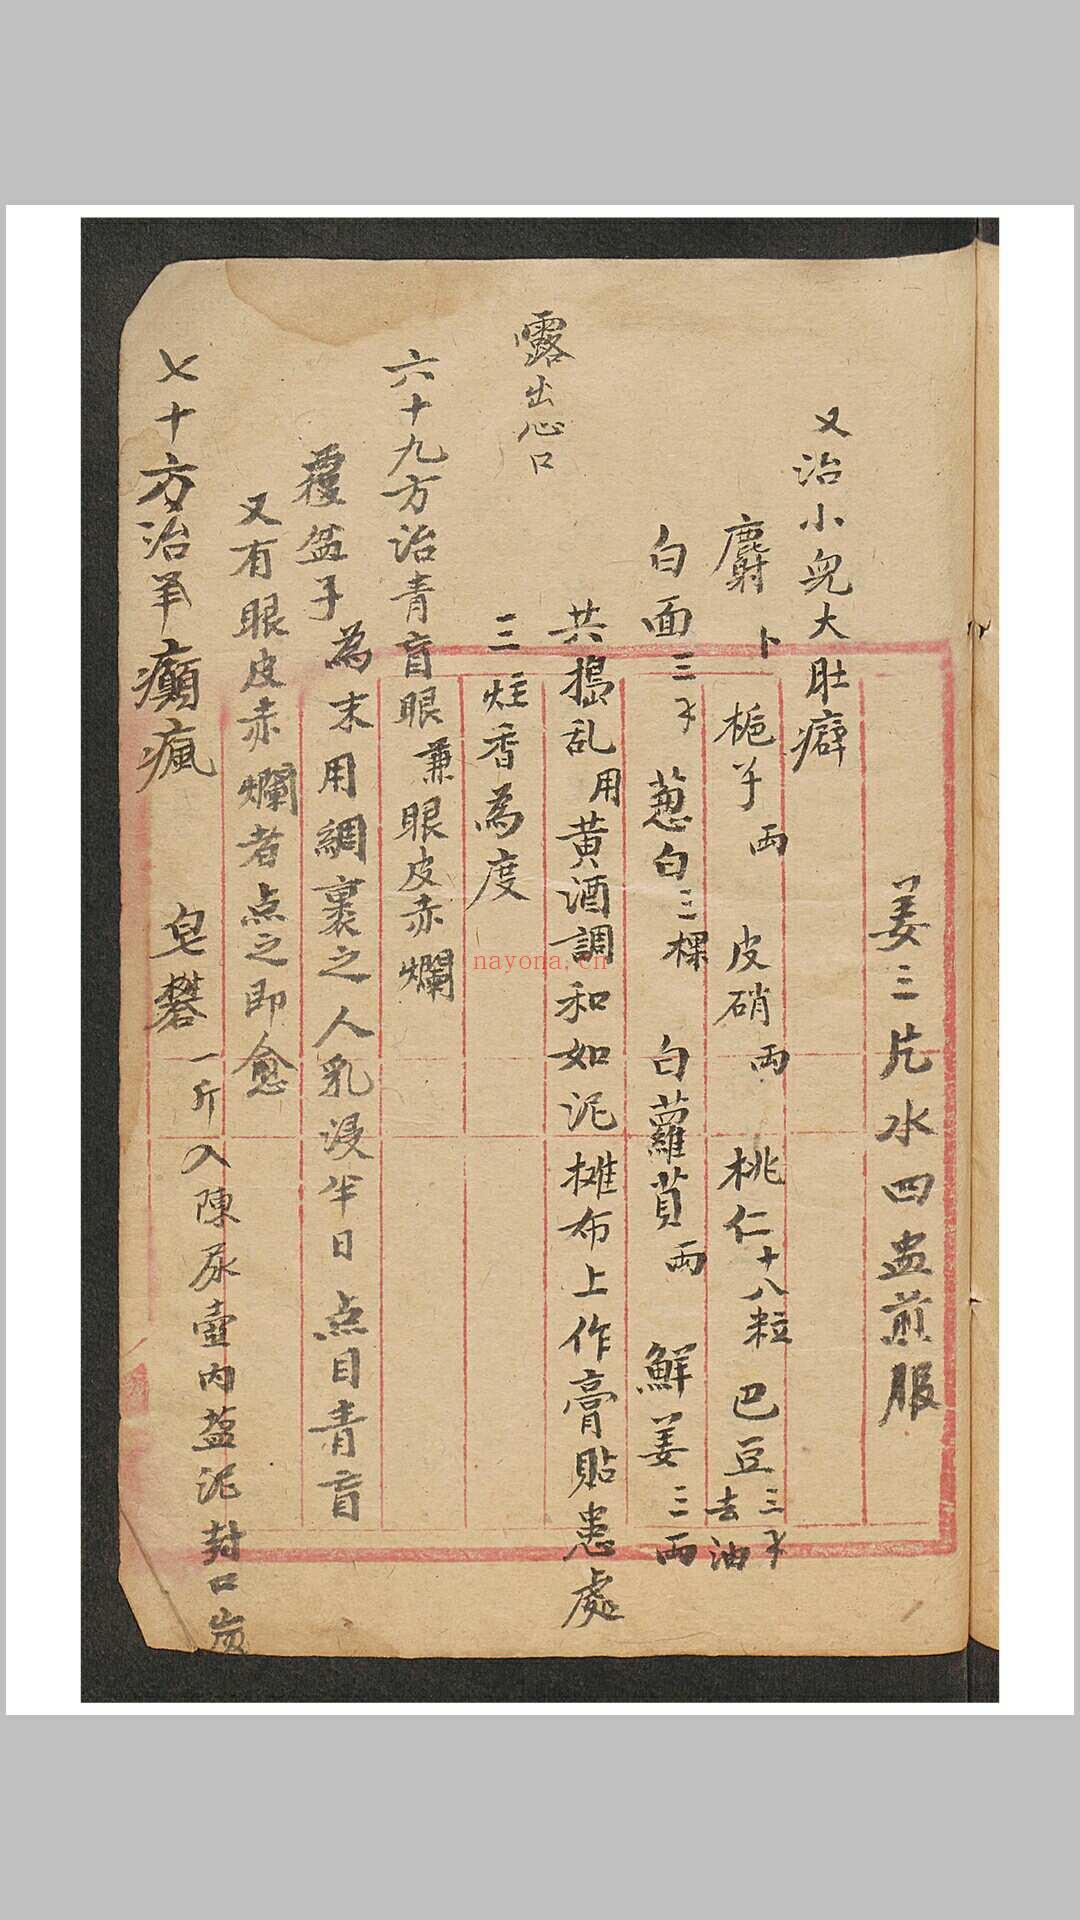 姜三片水四盅煎服
又治小兒大肚癖
麝卜 梔子兩 皮硝兩 桃仁十八粒 巴豆三才去油
白面三才 葱白三棵 白蘿蔔兩 鮮姜三兩
共搗乱用黄酒調和如泥摊布上作膏貼患處
露出心口
三炷香為度
六十九方治青盲眼兼眼皮赤爛
覆盆子為末用綢裹之人乳浸半日点目青盲
又有眼皮赤爛者点之即愈
七十方治羊癲瘋 皂礬一斤入陳尿壺内盐泥封口炭
nayona.cn